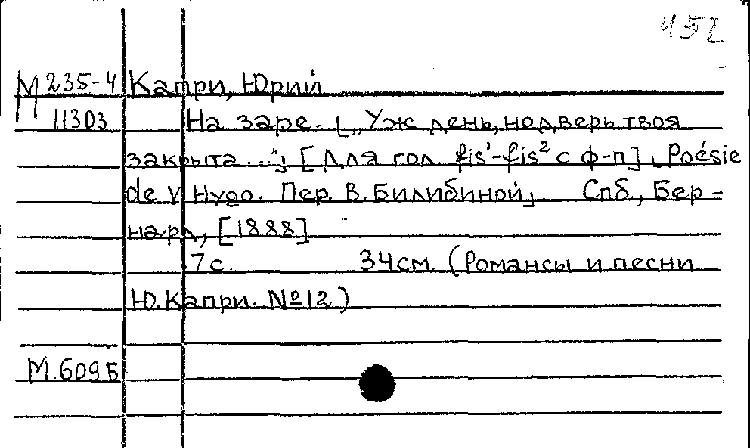 452
М 235-4 Капри, Юрий
11303 На заре. [„Уж день, но дверь твоя
закрыта ..."] [Для гол. fis¹-fis² с ф-п] [Poésie
de V. Hugo. Пер. В. Билибиной] Спб., Бер-
нард, [1888]
7 с. 34 см. (Романсы и песни
Ю. Капри. №12)
М.609Б